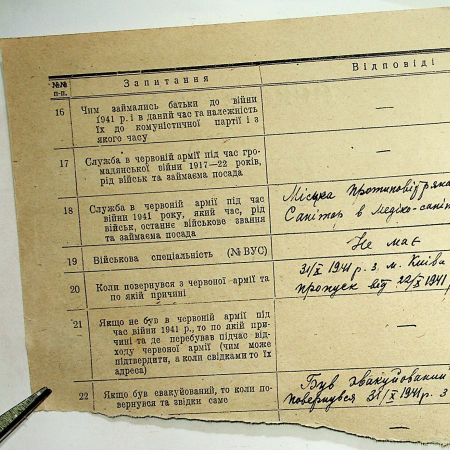 №№ п-п.
Запитання
Відповіді
16
Чим займались батьки до війни
1941 р. і в даний час та належність
їх до комуністичної партії і з
якого часу
—
17
Служба в червоній армії під час гро-
мадянської війни 1917—22 років,
рід військ та займаєма посада
—
18
Служба в червоній армії під час
війни 1941 року, який час, рід
військ, останнє військове звання
та займаєма посада
Міська
Санітар в
19
Військова спеціальність (№ ВУС)
Не має
20
Коли повернувся з червоної армії та
по якій причині
31/X 1941 р. з м. Київа
пропуск від 22/X 1941
21
Якщо не був в червоній армії під
час війни 1941 р., то по якій при-
чині та де перебував підчас від-
ходу червоної армії (чим може
підтвердити, а коли свідками то їх
адреса)
—
22
Якщо був евакуйований, то коли по-
вернувся та звідки саме
Був эвакуйований
повернувся 31/X 1941 р. з